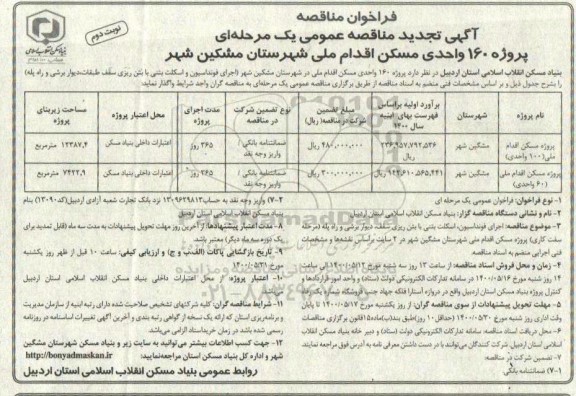 فراخوان مناقصه
نوبت دوم
آگهی تجدید مناقصه عمومی یک مرحله‌ای
پروژه ۱۶۰ واحدی مسکن اقدام ملی شهرستان مشکین شهر
بنیاد مسکن انقلاب اسلامی استان اردبیل در نظر دارد پروژه ۱۶۰ واحدی مسکن اقدام ملی در شهرستان مشکین شهر (اجرای فونداسیون و اسکلت بتنی با بتن ریزی سقف طبقات-دیوار برشی و راه پله)
را بشرح جدول ذیل و بر اساس مشخصات فنی منضم به اسناد مناقصه از طریق برگزاری مناقصه عمومی یک مرحله‌ای به مناقصه گران واجد شرایط واگذار نماید:
نام پروژه | شهرستان | برآورد اولیه براساس فهرست بهای ابنیه سال ۱۴۰۰ | مبلغ تضمین شرکت در مناقصه( ریال) | نوع تضمین شرکت در مناقصه | مدت اجرای پروژه | محل اعتبار پروژه | مساحت زیربنای پروژه
پروژه مسکن اقدام ملی(۱۰۰ واحدی) | مشگین شهر | ۲۳۶,۹۵۷,۷۹۲,۵۳۶ ریال | ۴۸۰,۰۰۰,۰۰۰ ریال | ضمانتنامه بانکی / واریز وجه نقد | ۳۶۵ روز | اعتبارات داخلی بنیاد مسکن | ۱۲۳۸۷,۴ مترمربع
پروژه مسکن اقدام ملی (۶۰ واحدی) | مشگین شهر | ۱۴۲,۶۱۰,۵۶۵,۴۴۱ ریال | ۳۰۰,۰۰۰,۰۰۰ ریال | ضمانتنامه بانکی / واریز وجه نقد | ۳۶۵ روز | اعتبارات داخلی بنیاد مسکن | ۷۴۲۲,۹ مترمربع
۱- نوع فراخوان: فراخوان عمومی یک مرحله ای
۲- نام و نشانی دستگاه مناقصه گزار: بنیاد مسکن انقلاب اسلامی استان اردبیل
۳- موضوع مناقصه: اجرای فونداسیون، اسکلت بتنی با بتن ریزی سقف، دیوار برشی و راه پله (مرحله
سفت کاری) پروژه مسکن اقدام ملی شهرستان مشگین شهر در ۲ ساعت براساس نقشه‌ها و مشخصات
فنی اجرایی منضم به اسناد مناقصه.
۴- زمان و محل فروش اسناد مناقصه: از ساعت ۱۲ روز سه شنبه مورخ ۱۴۰۰/۰۵/۱۲ الی ساعت
۱۴ روز شنبه مورخ ۱۴۰۰/۰۵/۱۶ در سامانه تدارکات الکترونیکی دولت (ستاد) و واحد امور قراردادها و
کنترل پروژه بنیاد مسکن استان اردبیل
۵- مهلت تحویل پیشنهادات از سوی مناقصه گران: از روز یکشنبه مورخ ۱۴۰۰/۰۵/۱۷ تا پایان
وقت اداری روز شنبه مورخ ۱۴۰۰/۰۵/۳۰ (حداقل ۱۰ روز)
۶- محل دریافت اسناد مناقصه: سامانه تدارکات الکترونیکی دولت (ستاد) و دبیر خانه بنیاد مسکن انقلاب
اسلامی استان اردبیل، شرکت کنندگان می‌توانند با در دست داشتن معرفی نامه به آدرس فوق مراجعه نمایند.
۷- تضمین شرکت در مناقصه:
۷-۱) ضمانتنامه بانکی
۷-۲) واریز وجه نقد به حساب ۱۳۰۹۶۲۹۸۱۳ نزد بانک تجارت شعبه آزادی اردبیل(کد ۱۳۰۹۰) بنام
بنیاد مسکن انقلاب اسلامی استان اردبیل
۸- مدت اعتبار پیشنهادها: از آخرین روز مهلت تحویل پیشنهادات به مدت سه ماه (قابل تمدید برای
یک دوره سه ماه دیگر) معتبر باشد.
۹- تاریخ بازگشایی پاکات (الف،ب و ج) و ارزیابی کیفی: ساعت ۱۰ قبل از ظهر روز یکشنبه
مورخ ۱۴۰۰/۰۵/۳۱
۱۰- اعتبار پروژه: از محل اعتبارات داخلی بنیاد مسکن انقلاب اسلامی استان اردبیل
۱۱- شرایط مناقصه گران: کلیه شرکتهای تشخیص صلاحیت شده دارای رتبه ابنیه از سازمان مدیریت
و برنامه‌ریزی استان که ارائه یک نسخه از گواهی رتبه بندی و آخرین آگهی تغییرات اساسنامه در روزنامه
رسمی شده باشد در زمان خرید اسناد الزامی می‌باشد.
۱۲- جهت کسب اطلاعات بیشتر می توانید به سایت زیر و بنیاد مسکن شهرستان مشگین
شهر و اداره کل بنیاد مسکن استان مراجعه نمایید: http://bonyadmaskan.ir
روابط عمومی بنیاد مسکن انقلاب اسلامی استان اردبیل